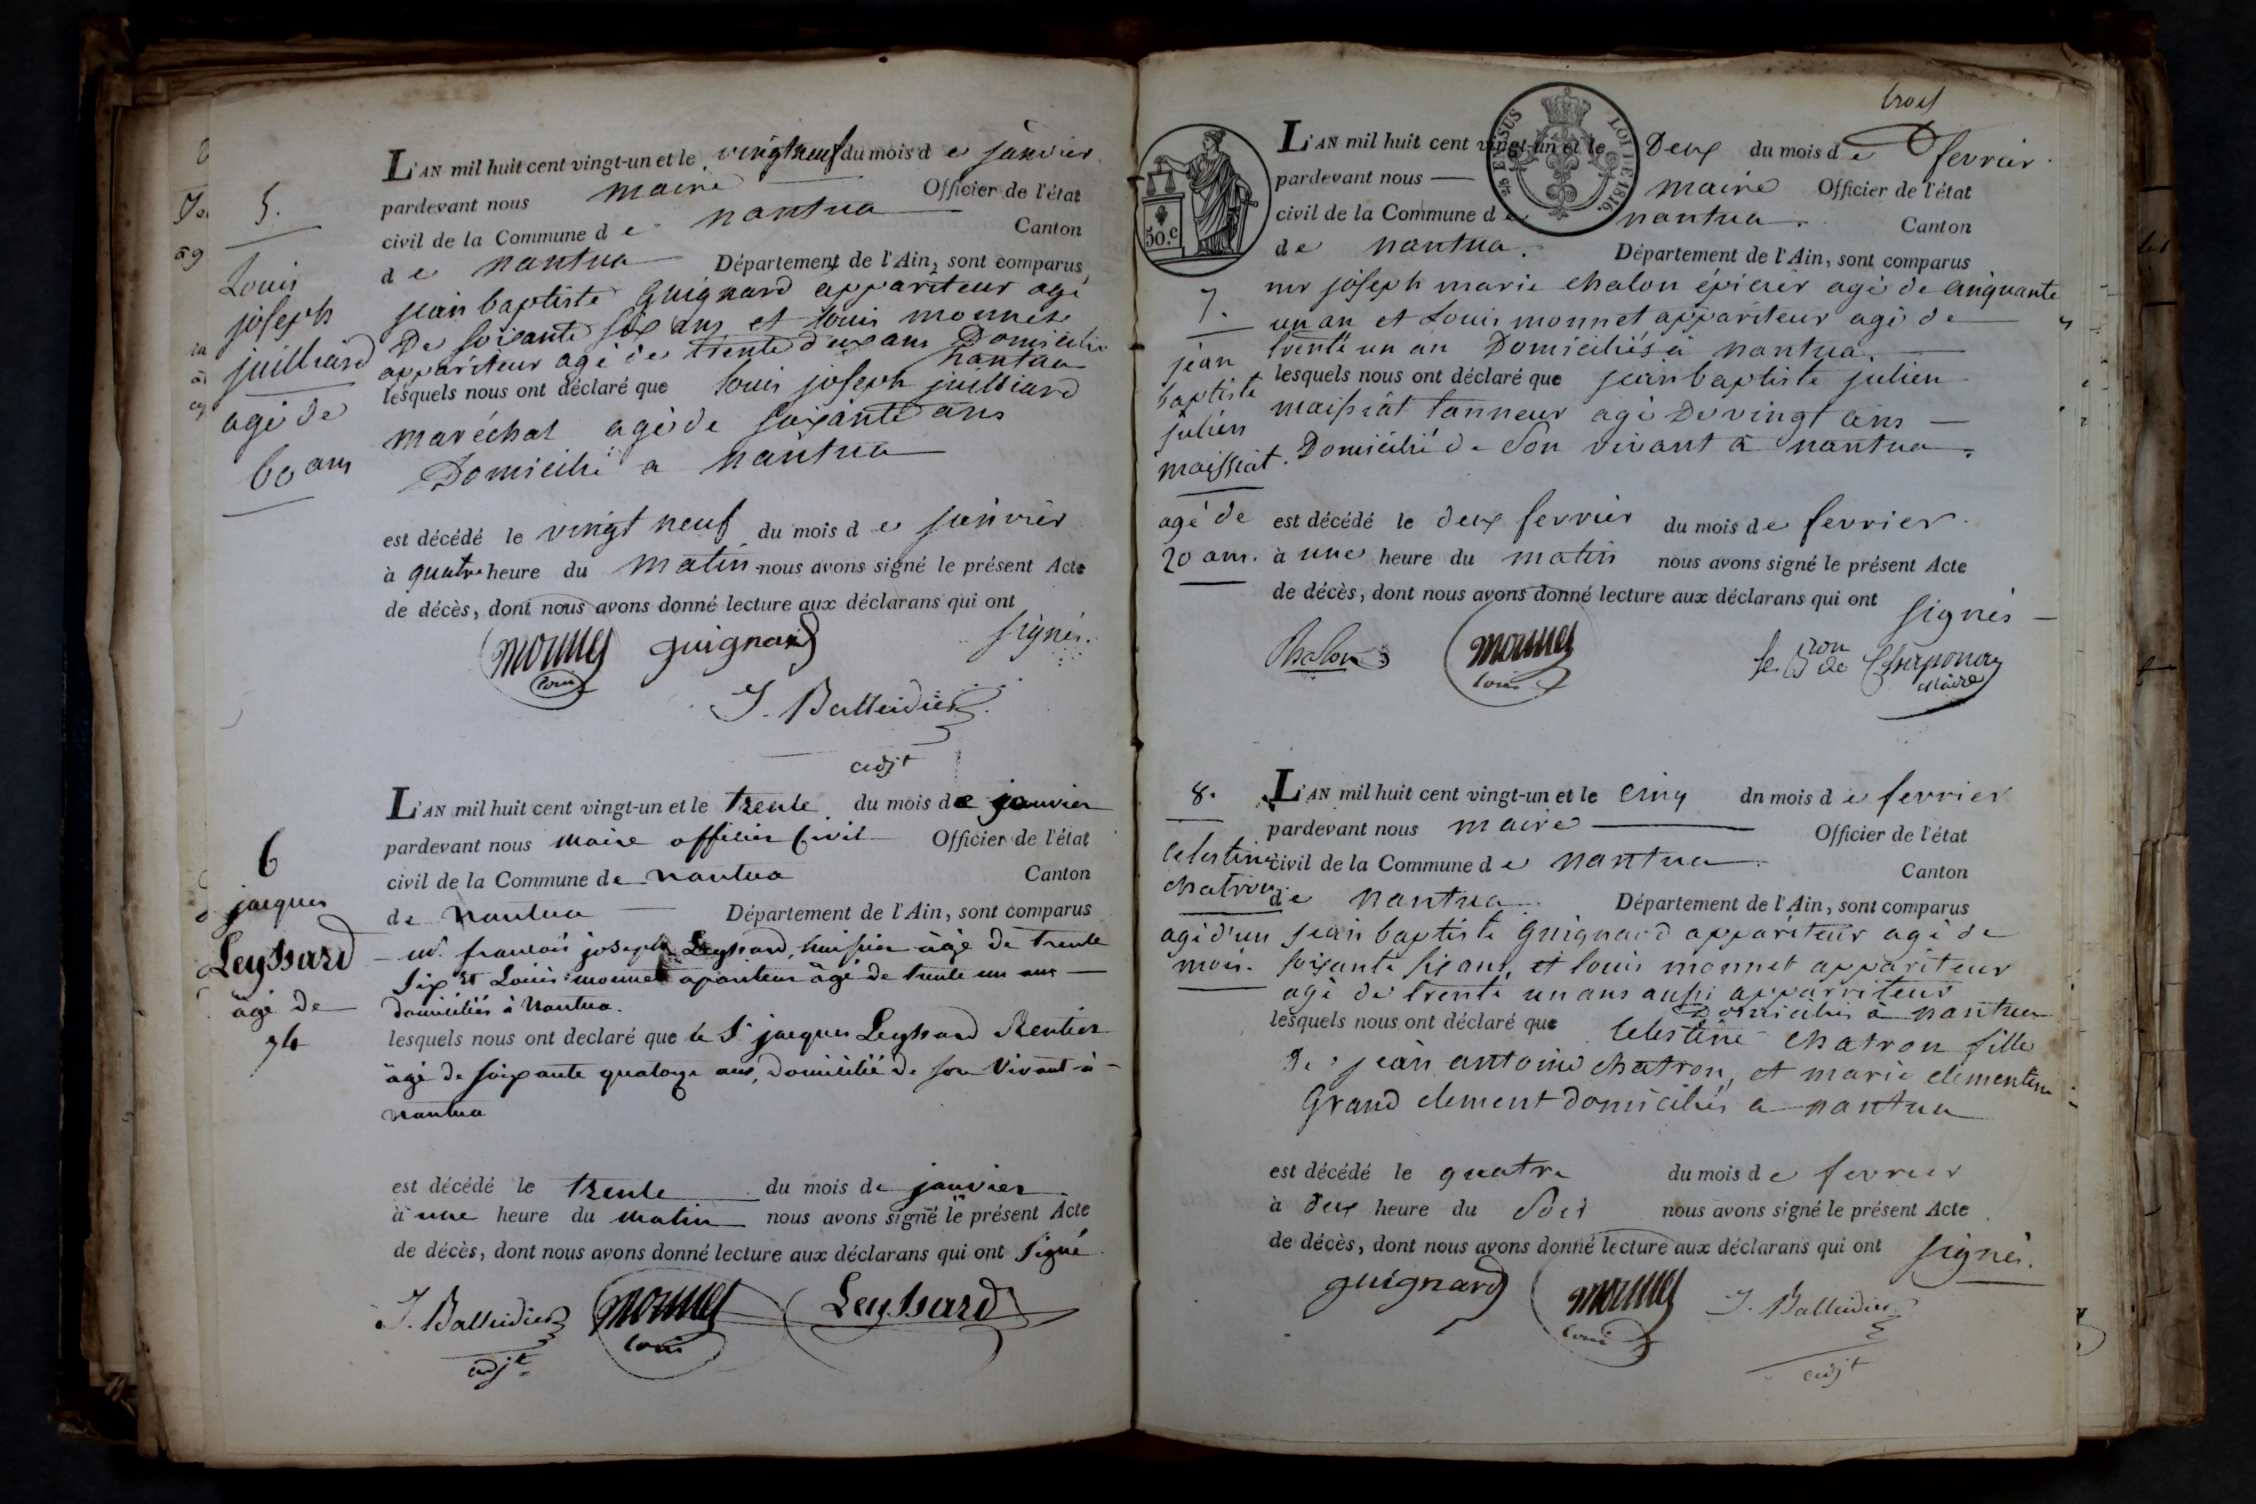 5.
Louis
joseph
juilliard
agé de
60 ans
L'AN mil huit cent vingt-un et le vingtneuf du mois de janvier
pardevant nous maire Officier de l'état
civil de la Commune de nantua Canton
de nantua Département de l'Ain, sont comparus
jean baptiste Guignard appariteur agé
De soixante six ans et louis monnet
appariteur agé de trente deux ans Domicilié
nantua
lesquels nous ont déclaré que louis joseph juilliard
maréchal agé de soixante ans
Domicilié a nantua
est décédé le vingt neuf du mois de janvier
à quatre heure du matin nous avons signé le présent Acte
de décès, dont nous avons donné lecture aux déclarans qui ont
signés.
monnet guignard
louis
J. Balleidier
adjt
6
jacques
Leyssard
âgé de
74
L'AN mil huit cent vingt-un et le trente du mois de janvier
pardevant nous maire officier Civil Officier de l'état
civil de la Commune de nantua Canton
de nantua Département de l'Ain, sont comparus
mr. francois joseph Leyssard, huissier âgé de trente
six et Louis monnet apariteur âgé de trente un ans
domiciliés à Nantua.
lesquels nous ont declaré que le Sr jacques Leyssard Rentier
âgé de soixante quatorze ans, domicilié de son Vivant à
nantua
est décédé le trente du mois de janvier
à une heure du matin nous avons signé le présent Acte
de décès, dont nous avons donné lecture aux déclarans qui ont signé
J. Balleidier monnet Leyssard
louis
adjt
trois
50.c
LOI DE 1816.
7.
jean
baptiste
julien
maissiat.
agé de
20 ans.
L'AN mil huit cent vingt-un et le Deux du mois de fevrier.
pardevant nous maire Officier de l'état
civil de la Commune de nantua. Canton
de nantua. Département de l'Ain, sont comparus
mr joseph marie chalon épicier agé de cinquante
un an et Louis monnet appariteur agé de
trente un an Domiciliés à nantua.
lesquels nous ont déclaré que jean baptiste julien
maissiat tanneur agé De vingt ans
Domicilié de Son vivant a nantua.
est décédé le deux fevrier du mois de fevrier.
à une heure du matin nous avons signé le présent Acte
de décès, dont nous avons donné lecture aux déclarans qui ont
signés
Chalon monnet
louis
maire
8.
Celestine
chatron.
agé d'un
mois.
L'AN mil huit cent vingt-un et le cinq dn mois de fevrier
pardevant nous maire Officier de l'état
civil de la Commune de nantua. Canton
de nantua. Département de l'Ain, sont comparus
jean baptiste guignard appariteur agé de
soixante six ans, et louis monnet appariteur
agé de trente un ans aussi apparriteur
Domiciliés a nantua
lesquels nous ont déclaré que Celestine chatron fille
De jean antoine chatron, et marie clementine
Grand clement domiciliés a nantua
est décédé le quatre du mois de fevrier
à deux heure du Soir nous avons signé le présent Acte
de décès, dont nous avons donné lecture aux déclarans qui ont signés.
guignard monnet J. Balleidier
louis
adjt